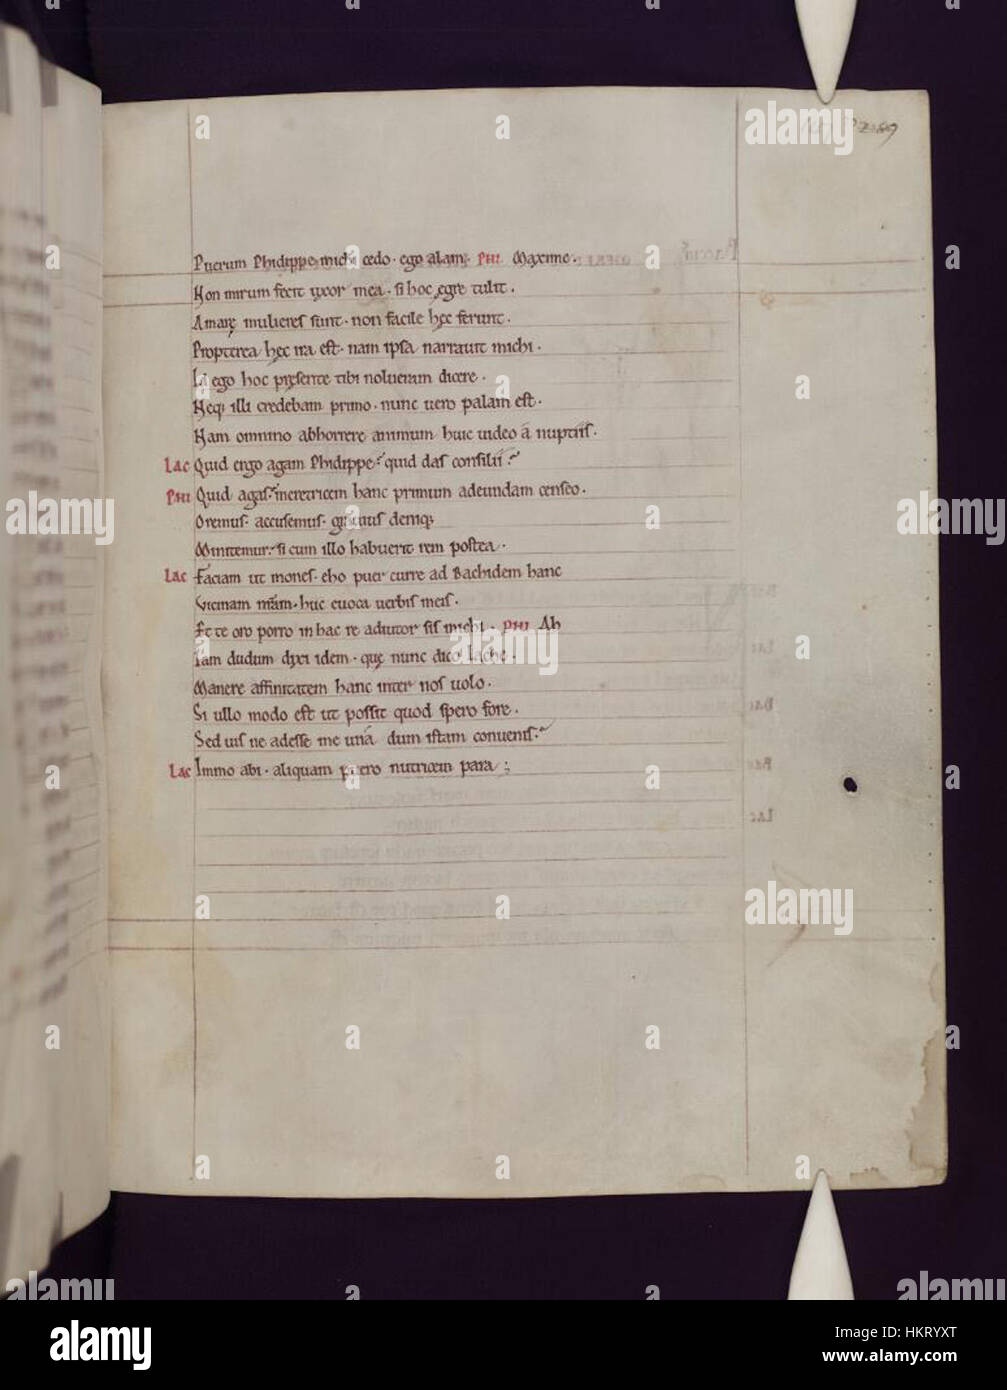 Puerum Phidippe michi cedo · ego alam; PHI Maxime ·
Non mirum fecit uxor mea · si hoc ęgre tulit ·
Amarę mulieres sunt · non facile hęc ferunt ·
Propterea hęc ira est · nam ipsa narrauit michi ·
Id ego hoc pręsente tibi nolueram dicere ·
Neq; illi credebam primo · nunc uero palam est ·
Nam omnino abhorrere animum huic uideo a nuptiis ·
LAC Quid ergo agam Phidippe? quid das consilii?
PHI Quid agas? meretricem hanc primum adeundam censeo ·
Oremus · accusemus · grauius deniq;
Minitemur · si cum illo habuerit rem postea ·
LAC Faciam ut mones · eho puer curre ad Bachidem hanc
Vicinam nr̄am · huc euoca uerbis meis ·
Et te oro porro in hac re adiutor sis michi · PHI Ah
Iam dudum dixi idem · quę nunc dico Lache ·
Manere affinitatem hanc inter nos uolo ·
Si ullo modo est ut possit quod spero fore ·
Sed uis ne adesse me una dum istam conuenis?
LAC Immo abi · aliquam puero nutricem para ;
alamy
Image ID: HKRYXT
www.alamy.com